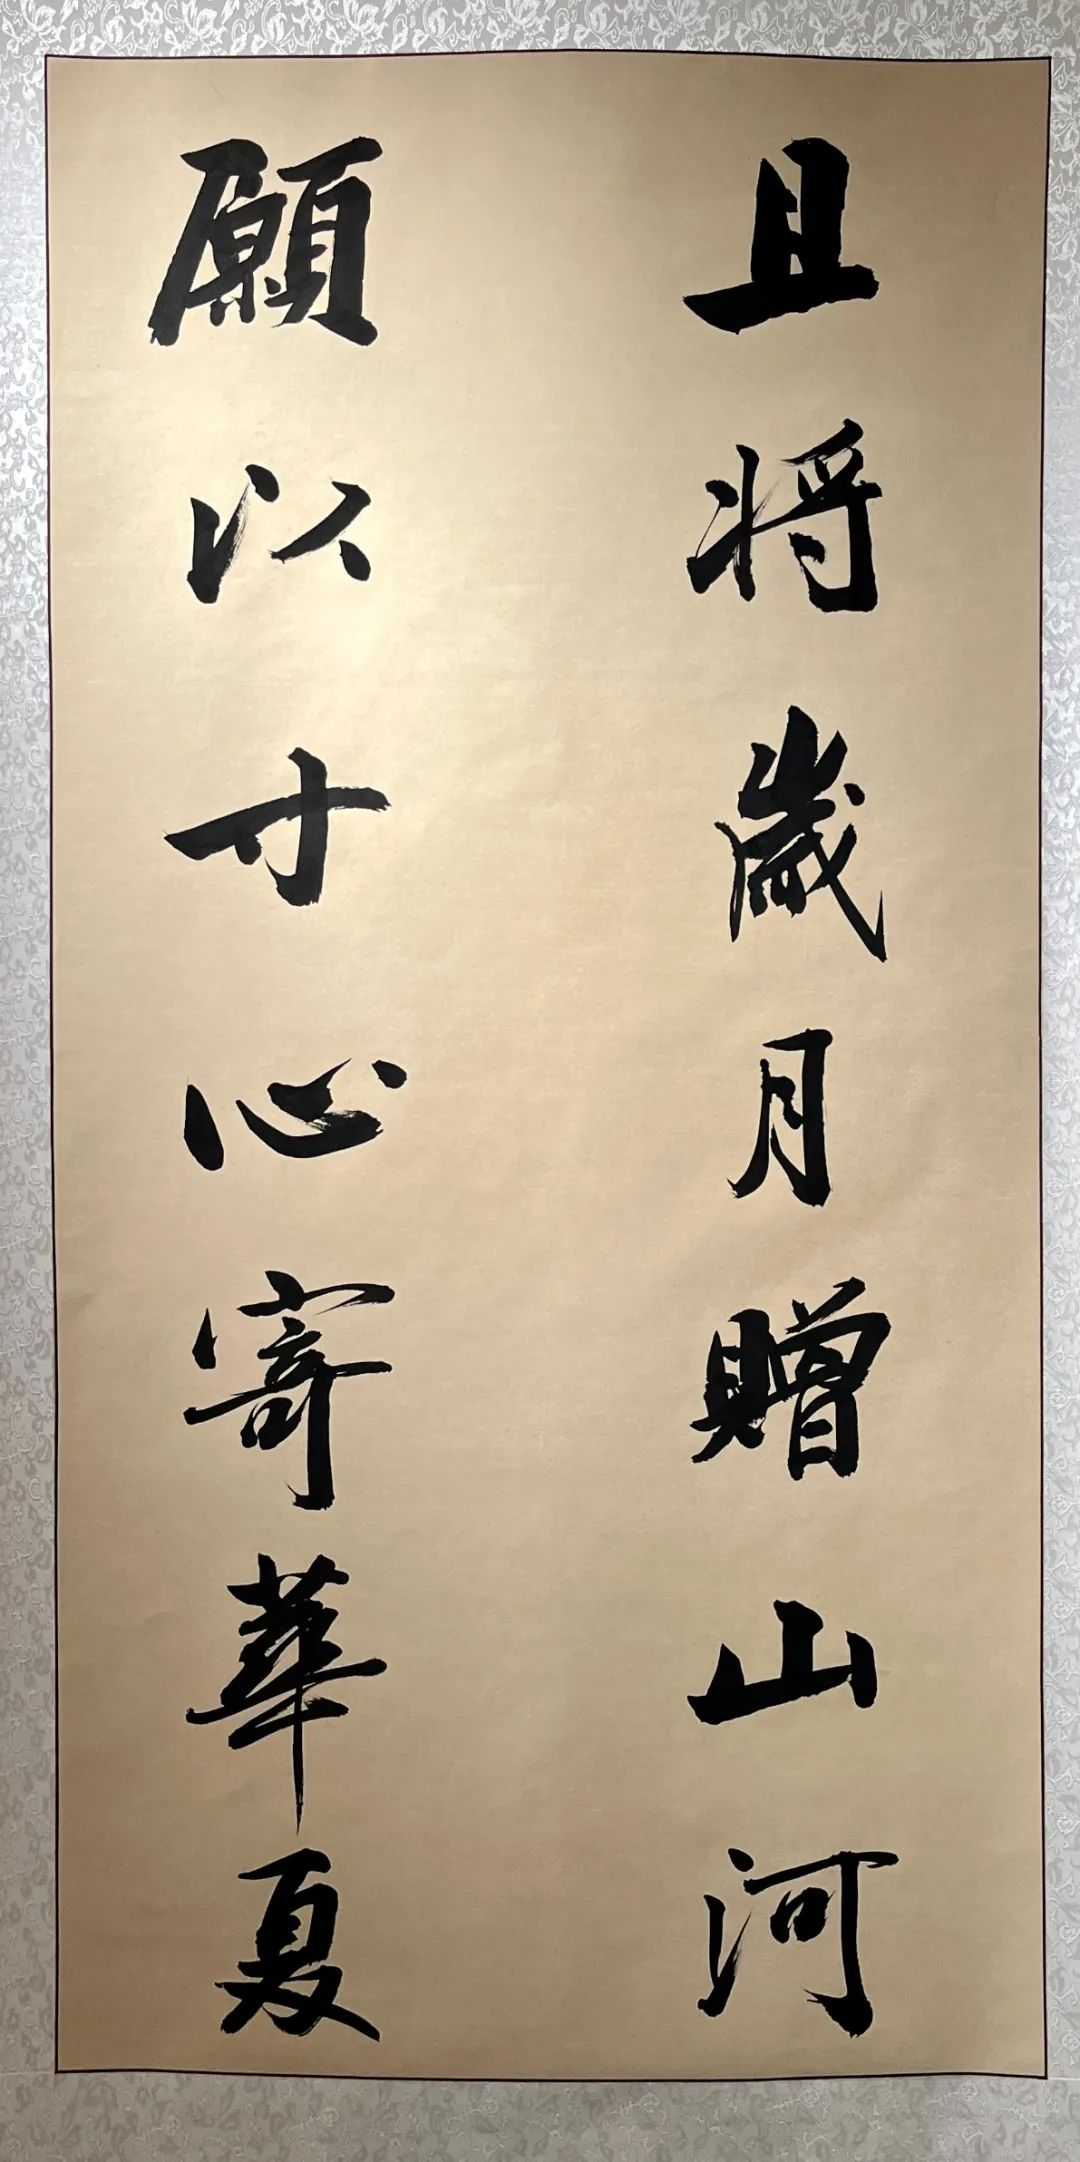 且将歲月贈山河
願以寸心寄華夏